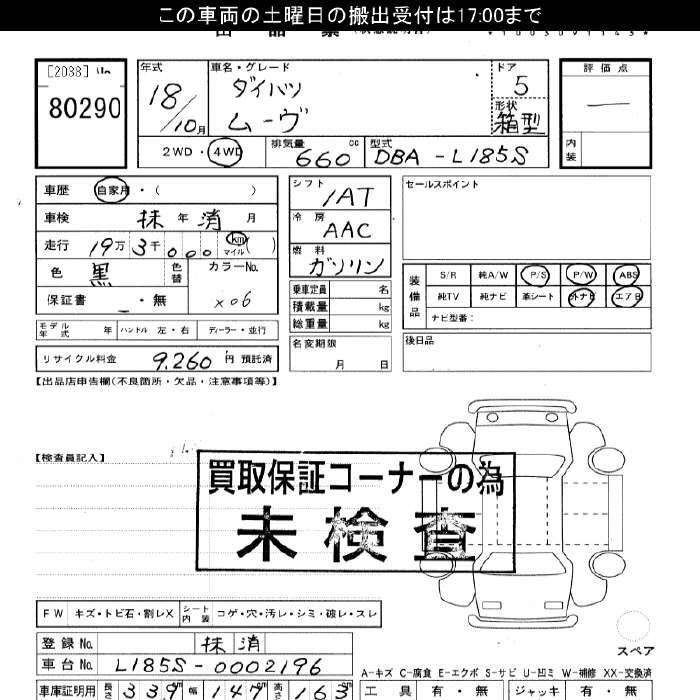 この車両の土曜日の搬出受付は17:00まで
[2038]
80290
年式
18/10月
車名・グレード
ダイハツ
ムーヴ
ドア
5
形状
箱型
評価点
—
内装
2WD・4WD
排気量
660 cc
型式
DBA-L185S
車歴 自家用・( )
車検 抹年 消月
走行 19万3千000 km マイル( )
色 黒 色替
カラーNo.
X06
保証書 ・無
シフト
1AT
冷房
AAC
燃料
ガソリン
乗車定員 名
積載量 kg
総重量 kg
セールスポイント
装備品
S/R 純A/W P/S P/W ABS
純TV 純ナビ 革シート 外ナビ エアB
ナビ型番:
モデル年式 年 ハンドル 左・右 ディーラー・並行
リサイクル料金 9.260 円 預託済
名変期限
月 日
後日品
【出品店申告欄(不良箇所・欠品・注意事項等)】
【検査員記入】
買取保証コーナーの為
未検査
FW キズ・トビ石・割レX シート内装 コゲ・穴・汚レ・シミ・破レ・スレ
スペア
登録No. 抹消
車台No. L185S-0002196
A-キズ C-腐食 E-エクボ S-サビ U-凹ミ W-補修 XX-交換済
車庫証明用 長さ 339 幅 147 高さ 163
工具 有・無 ジャッキ 有・無